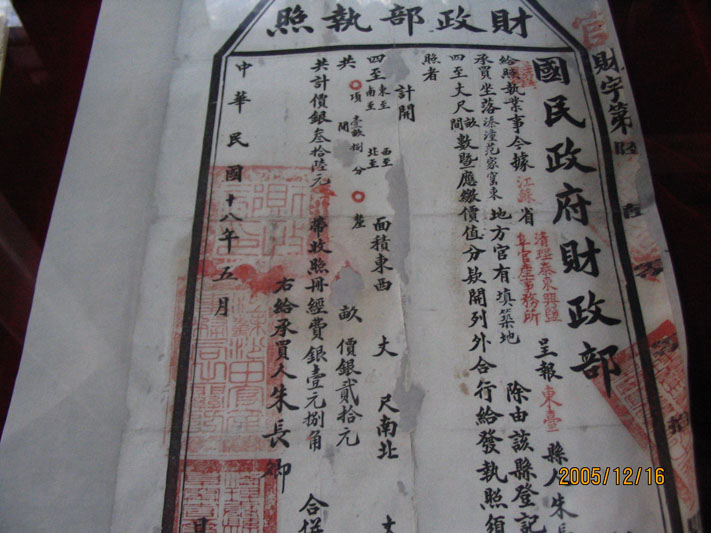 財政部執照
官
財字第
國民政府財政部
給照執業事今據江蘇省清理泰東興鹽阜官產事務所呈報東臺縣人朱長
承買坐落溱潼范家窰東地方官有填築地除由該縣登記
四至丈尺畝間數暨應繳價值分欵開列外合行給發執照須
照者
計開
四至東至西至南至北至面積東西丈尺南北丈
共項壹畝捌分間畝價銀貳拾元
共計價銀叁拾陸元帶收照冊經費銀壹元捌角合併
右給承買人朱長卿
中華民國十八年五月
2005/12/16